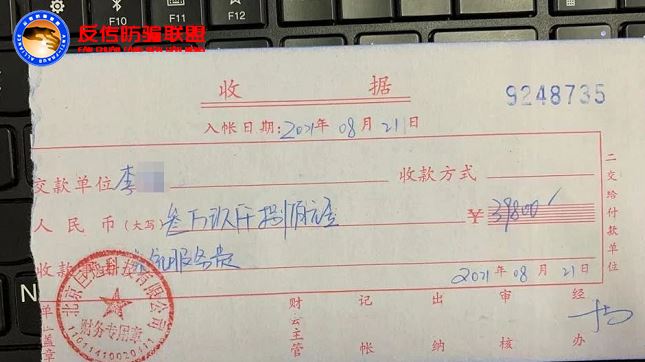 反传防骗联盟
收 据
9248735
入帐日期：2021年 08月 21日
交款单位 李
收款方式
人民币(大写) 叁万玖仟捌佰元整 ¥39800
收款 服务费
2021 年 08 月 21 日
二交给付款单位
北京 科技有限公司
财务专用章
单位盖章
财会主管
记帐
出纳
审核
经办
F6
F11
F12